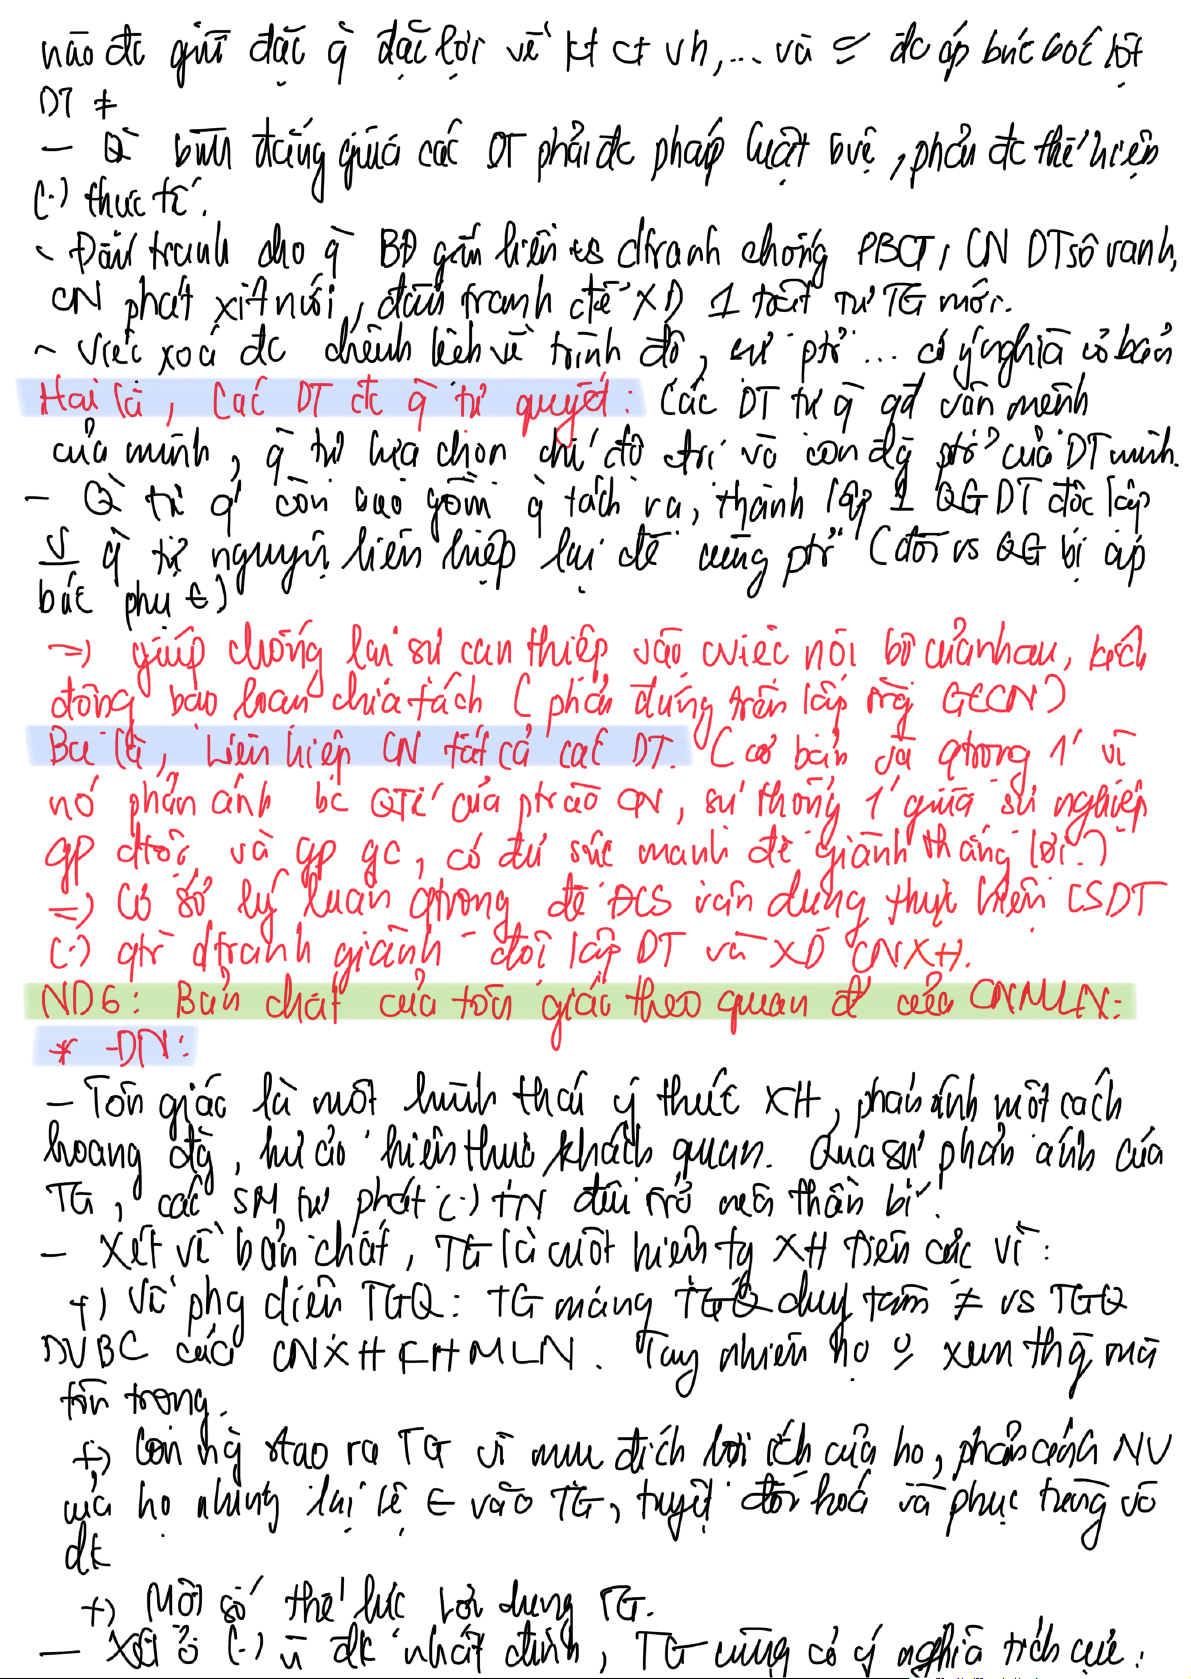 nào đc giữ đặc q̀ đặc lợi về kt ct vh,... và ⊆ đc áp bức bóc lột
DT ≠
- Q̀ bình đẳng giữa các DT phải đc pháp luật bvệ, phải đc thể hiện
(.) thực tế.
- Đấu tranh cho q̀ BĐ gắn liền vs đtranh chống PBCT, CN DT sô vanh,
CN phát xít mới, đấu tranh để XD 1 trật tự TG mới.
~ Việc xoá đc chênh lệch về trình độ, sự ptr ... có ý nghĩa cơ bản
Hai là, Các DT đc q̀ tự quyết: Các DT tự q̀ qđ vận mệnh
của mình, q̀ tự lựa chọn chế độ ctrị và con đg ptr của DT mình.
- Q̀ tự q' còn bao gồm q̀ tách ra, thành lập 1 QG DT độc lập
q̀ tự nguyện liên hiệp lại để cùng ptr (đối vs QG bị áp
bức phụ ∈)
=) giúp chống lại sự can thiệp vào cviệc nội bộ của nhau, kích
động bạo loạn chia tách (phải đứng trên lập trg GCCN)
Ba là, Liên hiệp CN tất cả các DT. (cơ bản và qtrọng 1' vì
nó phản ánh bc QTế của ptrào CN, sự thống 1' giữa sự nghiệp
gp dtộc và gp gc, có đủ sức mạnh để giành thắng lợi.)
=) Cơ sở lý luận qtrọng để ĐCS vận dụng thực hiện CSDT
(.) qtr đtranh giành độc lập DT và XD CNXH.
ND6: Bản chất của tôn giáo theo quan đ' của CNMLN:
* -ĐN:
- Tôn giáo là một hình thái ý thức XH, phản ánh một cách
hoang đg, hư ảo hiện thực khách quan. Qua sự phản ánh của
TG, các SM tự phát (.) TN đều trở nên thần bí.
- Xét về bản chất, TG là một hiện tg XH tiêu cực vì:
+) Về phg diện TGQ: TG mang TGQ duy tâm ≠ vs TGQ
DVBC của CNXHKHMLN. Tuy nhiên họ ⊆ xem thg mà
tôn trọng.
+) Con ng stạo ra TG vì mục đích lợi ích của họ, phản ánh NV
của họ nhưng lại lệ ∈ vào TG, tuyệt đối hoá và phục tùng vô
đk
+) Một số thế lực lợi dụng TG.
- Xét ở (.) ~ đk nhất định, TG cũng có ý nghĩa tích cực: